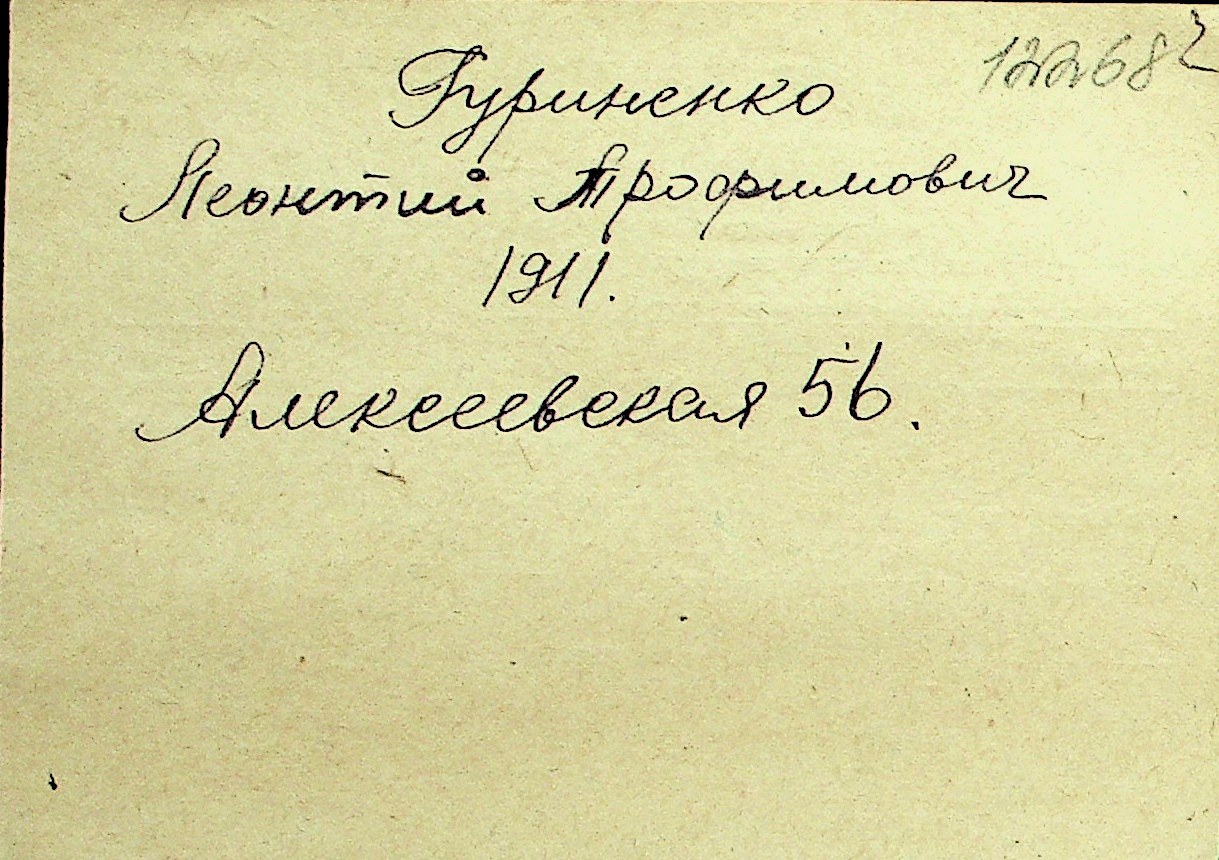 12268
Гуриненко
Леонтий Трофимович
1911.
Алексеевская 56.